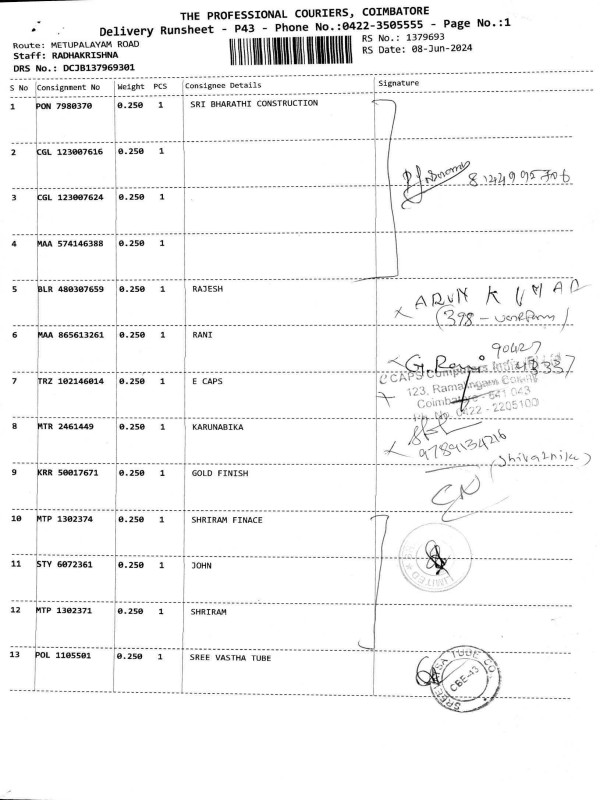 THE PROFESSIONAL COURIERS, COIMBATORE
Delivery Runsheet - P43 - Phone No.:0422-3505555 - Page No.:1
Route: METUPALAYAM ROAD
RS No.: 1379693
Staff: RADHAKRISHNA
RS Date: 08-Jun-2024
DRS No.: DCJB137969301
S No Consignment No Weight PCS Consignee Details Signature
1 PON 7980370 0.250 1 SRI BHARATHI CONSTRUCTION
2 CGL 123007616 0.250 1
3 CGL 123007624 0.250 1
4 MAA 574146388 0.250 1
5 BLR 480307659 0.250 1 RAJESH
ARUN KUMAR
6 MAA 865613261 0.250 1 RANI
90427
43337
7 TRZ 102146014 0.250 1 E CAPS
123, Ramalingam Colony
Coimbatore - 641 043
Ph. No. 0422 - 2205100
8 MTR 2461449 0.250 1 KARUNABIKA
9789134216
9 KRR 50017671 0.250 1 GOLD FINISH
10 MTP 1302374 0.250 1 SHRIRAM FINACE
LIMITED
11 STY 6072361 0.250 1 JOHN
12 MTP 1302371 0.250 1 SHRIRAM
13 POL 1105501 0.250 1 SREE VASTHA TUBE
TUBE CO.
CBE-43